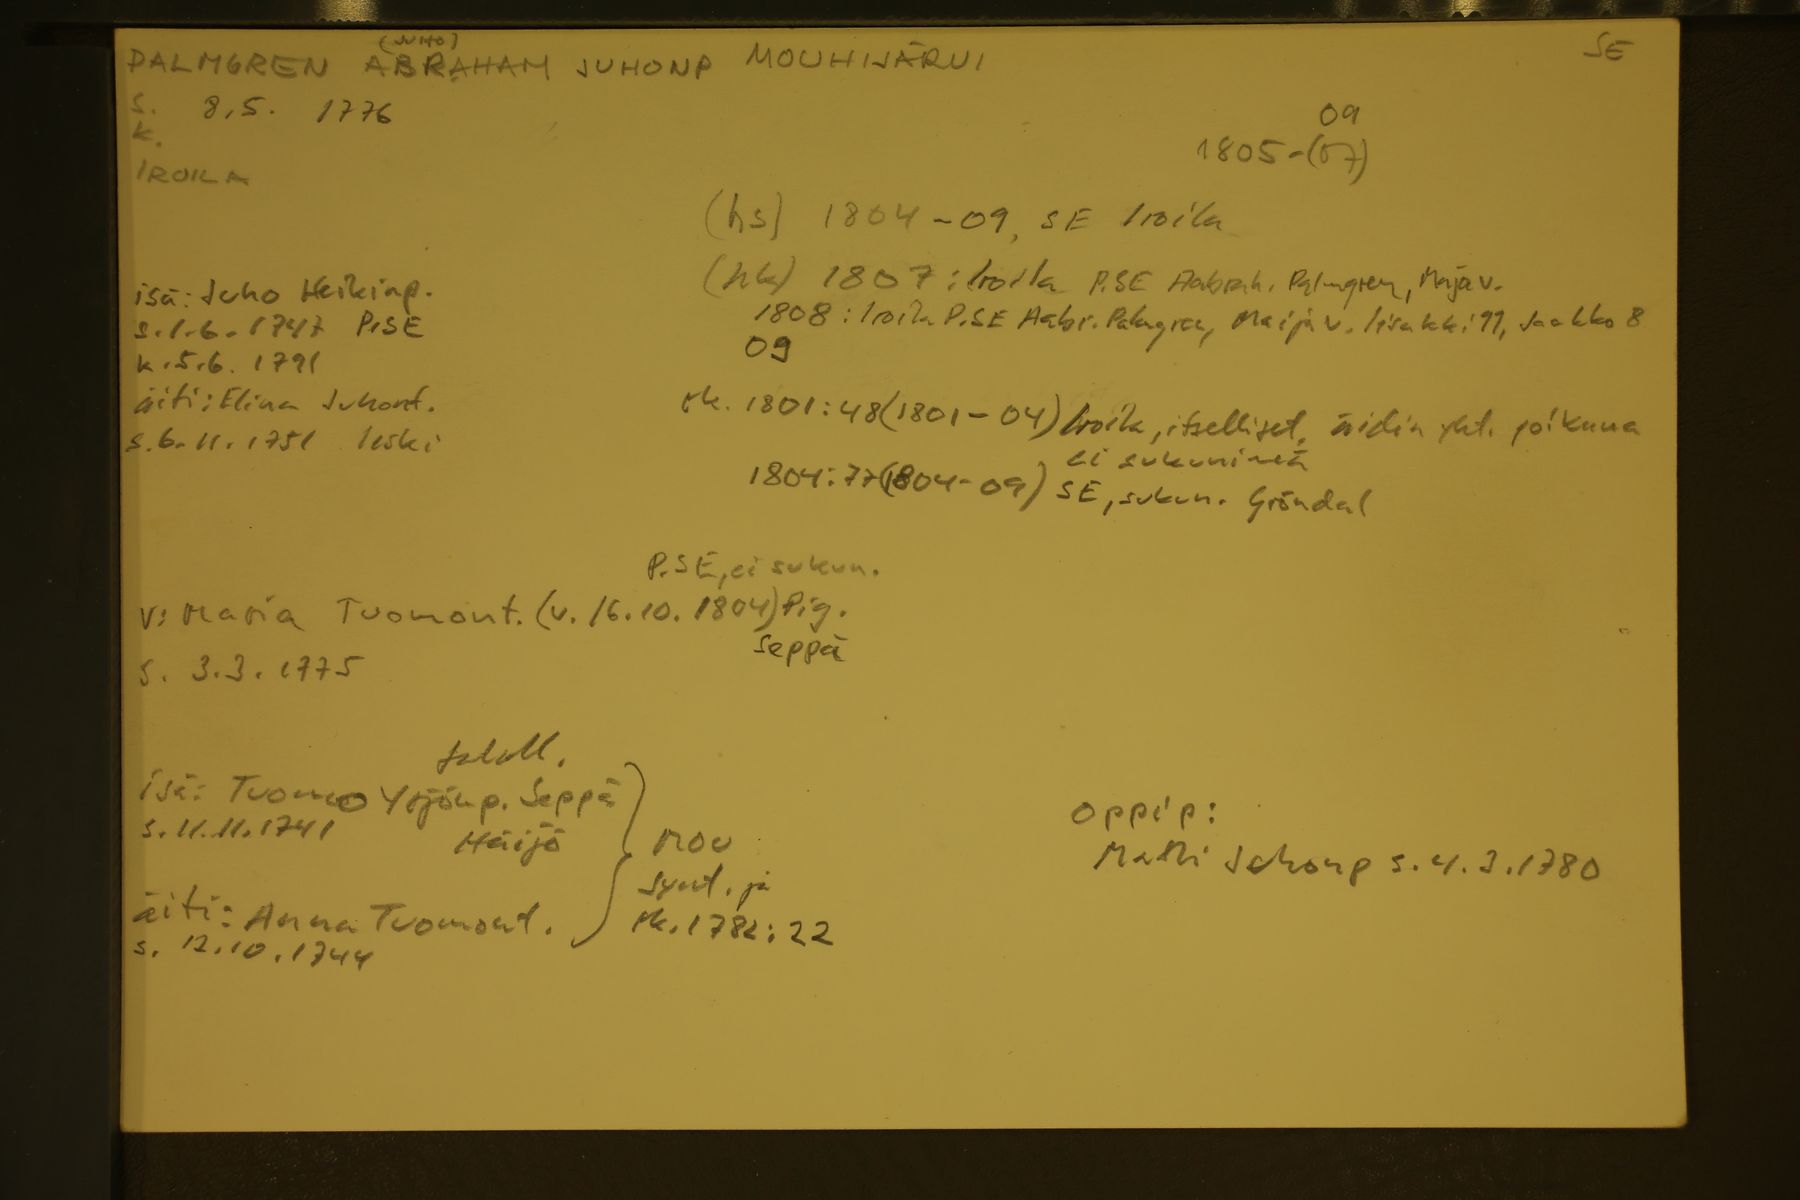 (JUHO)
PALMGREN ABRAHAM JUHONP MOUHIJÄRVI
SE
s. 8.5. 1776
k.
IROILA
09
1805-(07)
(hs) 1804-09, SE Iroila
(hk) 1807: Iroila P.SE Aabrah. Palmgren, Maja v.
1808: Iroila P.SE Aabr. Palmgren, Maija v. Iisakki 11, Jaakko 8
09
isä: Juho Heikinp.
s. 1.6. 1747 P.SE
k. 5.6. 1791
äiti: Elina Juhont.
s. 6.11. 1751 leski
rk. 1801:48(1801-04) Iroila, itselliset, äidin yht. poikana
ei sukunimeä
1804:77(1804-09) SE, sukun. Gröndal
P.SE, ei sukun.
v: Maria Tuomont. (v. 16.10. 1804) Pig.
Seppä
s. 3.3. 1775
taloll.
isä: Tuomo Yrjönp. Seppä
s. 11.11.1741 Häijö
MOU
synt. ja
rk. 1782:22
äiti: Anna Tuomont.
s. 12.10.1744
oppip:
Matti Juhonp s. 4.3.1780